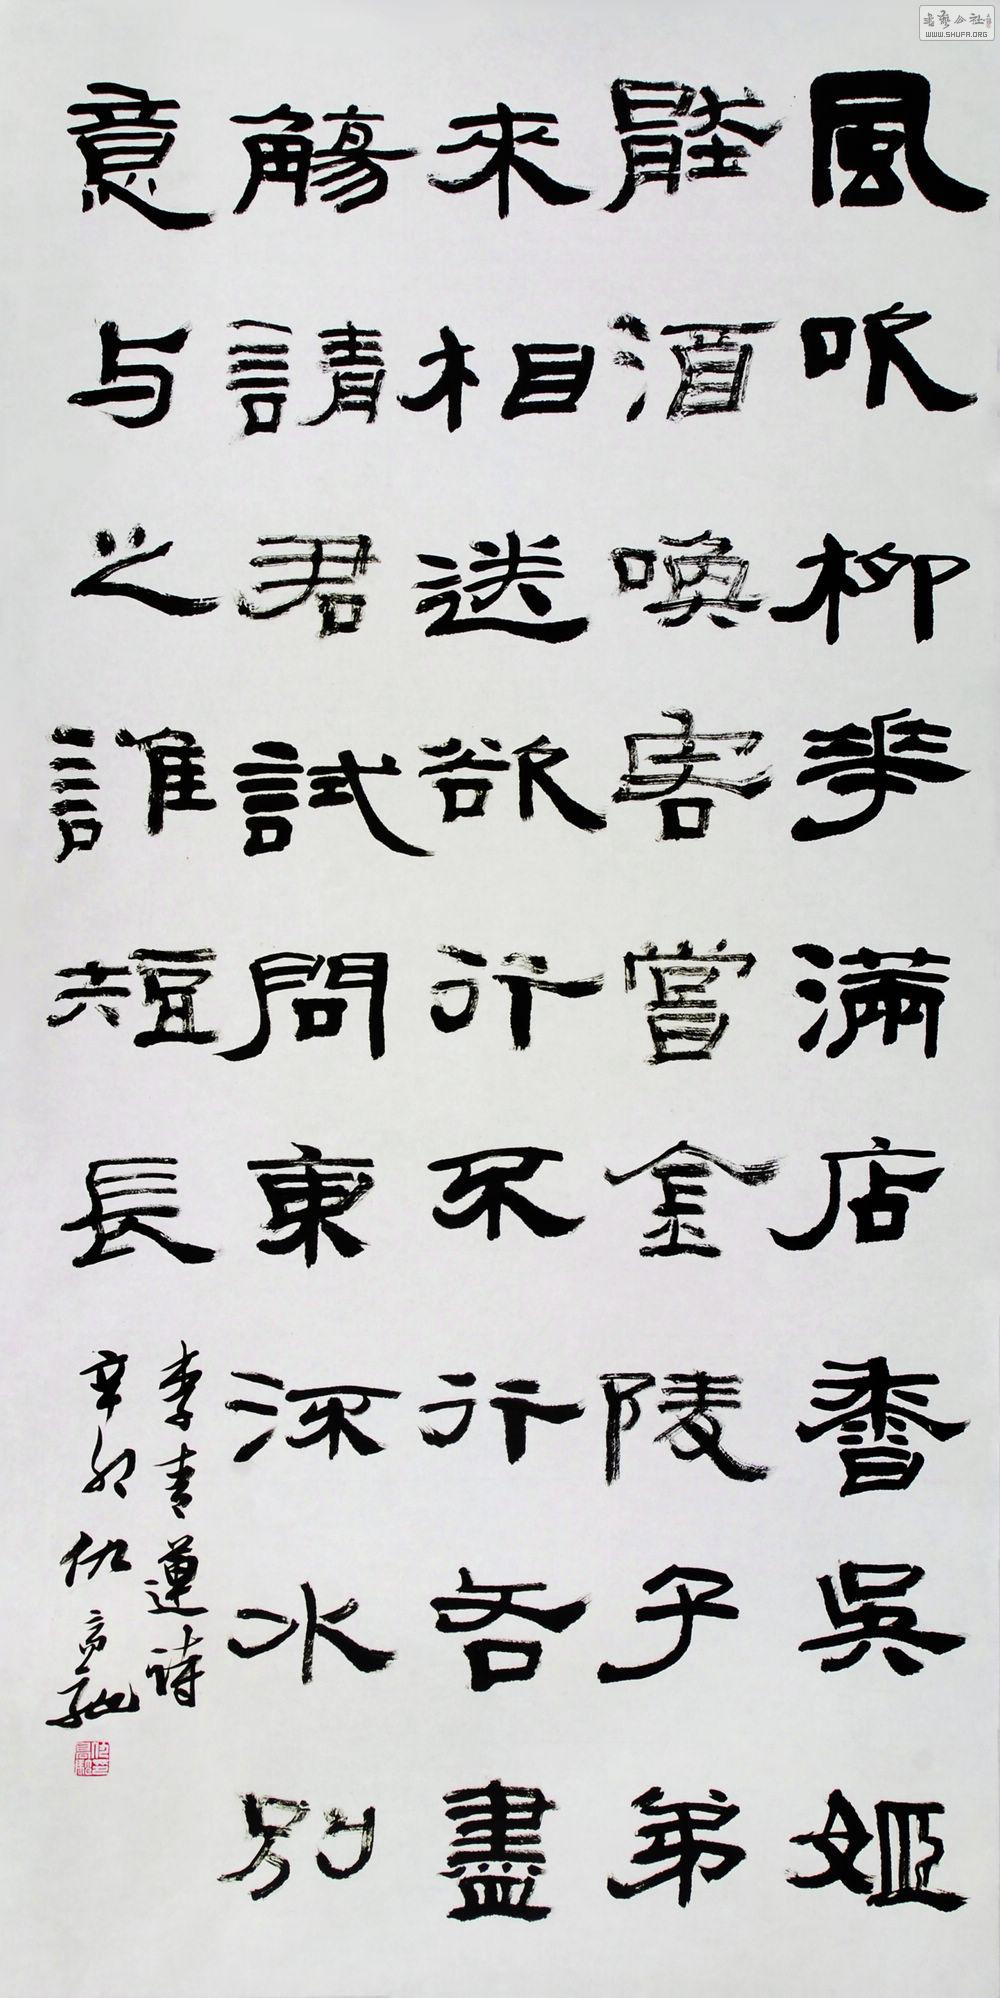 風吹柳華滿店香吳姬
壓酒喚客嘗金陵子弟
來相送欲行不行各盡
觴請君試問東流水別
意与之誰短長
李青蓮詩
辛卯仇高馳
书艺公社
WWW.SHUFA.ORG